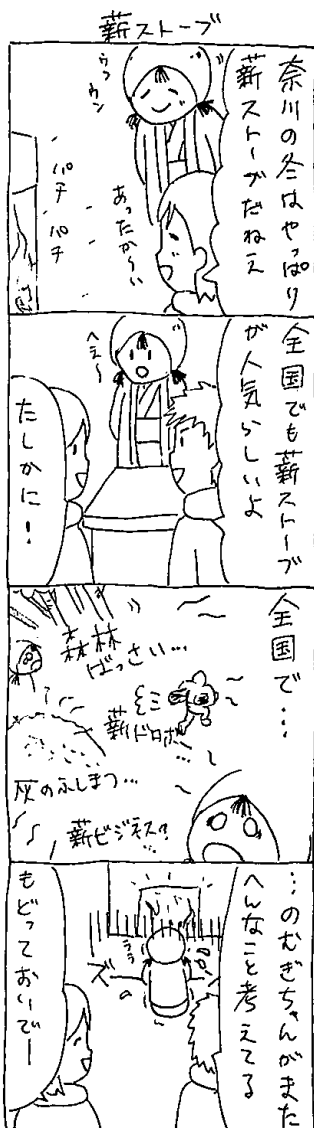 薪ストーブ
奈川の冬はやっぱり
薪ストーブだねえ
ウン
ウン
あったか〜い
パチ
パチ
全国でも薪ストーブ
が人気らしいよ
へえ〜
たしかに!
全国で…
森林
ばっさい…
薪ドロボー
…
灰のふしまつ…
薪ビジネス?
…
…のむぎちゃんがまた
へんなこと考えてる
ううう
ズ
もどっておいでー